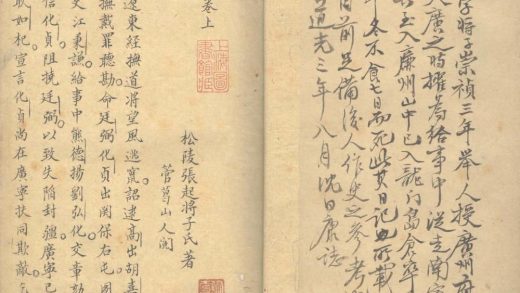 字將子崇禎三年舉人授廣州府
入廣之時擢為給事中從走南寧
入廉州山中已入龍門島倉卒
冬不食七日而死此其日記也所載
目前足備後人作史之參考
道光三年八月沈日康誌
卷上
松陵張起將子氏著
管葛山人閱
遼東經撫道將望風逃竄詔逮高出胡嘉
撫戴罪聽勘命廷弼化貞出関保右屯
史江秉謙給事中熊德揚劉弘化交章劾
信化貞阻撓廷弼以致失陷封疆廣寧已
敢如杞宣言化貞尚在廣寧扶同欺蔽